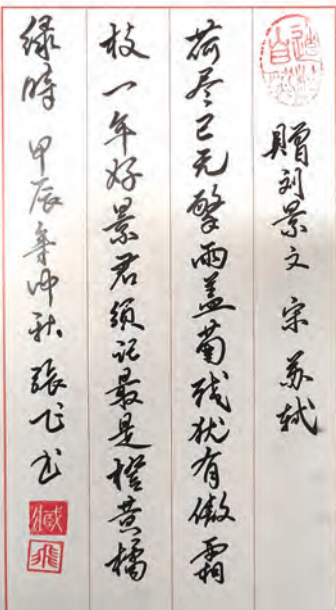 贈刘景文 宋 苏轼
荷尽已无擎雨盖菊残犹有傲霜
枝一年好景君须记最是橙黄橘
绿時 甲辰年仲秋 張飞书